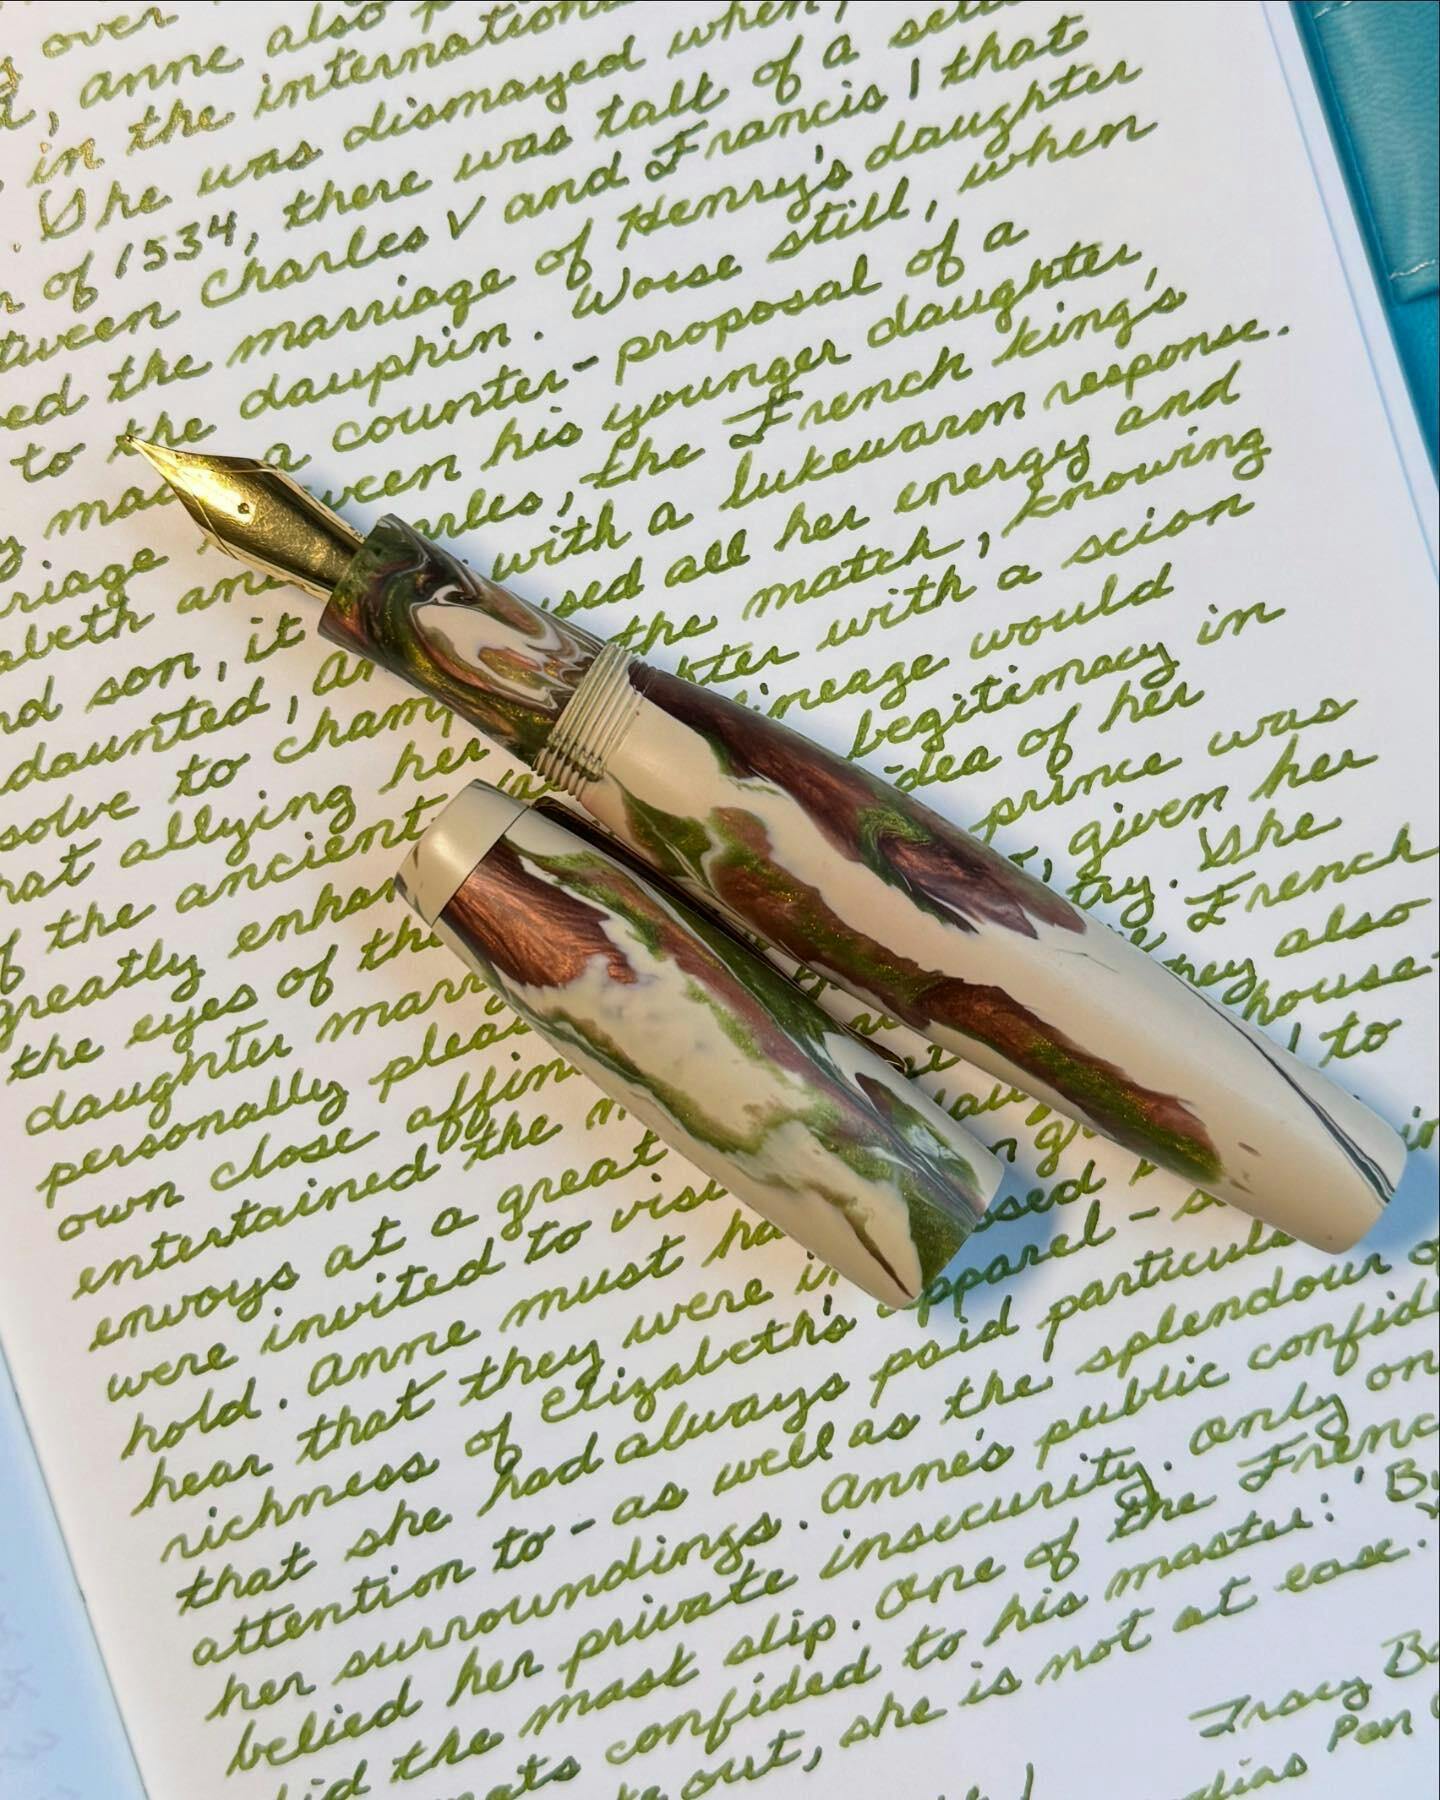 over
, Anne also
in the internation
. She was dismayed when,
of 1534, there was talk of a
tween Charles V and Francis I that
ed the marriage of Henry's daughter
to the dauphin. Worse still, when
made a counter-proposal of a
riage ween his younger daughter,
abeth and arles, the French king's
nd son, it with a lukewarm response.
daunted, An used all her energy and
solve to champ the match, knowing
hat allying her hter with a scion
f the ancient lineage would
greatly enhan legitimacy in
the eyes of the idea of her
daughter marry prince was
personally pleas , given her
own close affin try. She
entertained the French
envoys at a great they also
were invited to visi house-
hold. Anne must ha to
hear that they were in
richness of Elizabeth's apparel - s
that she had always paid particula
attention to - as well as the splendour of
her surroundings. Anne's public confid
belied her private insecurity. Only on
did the mask slip. One of the Frenc
mats confided to his master: 'B
out, she is not at ease.'
Tracy Bo
Pen